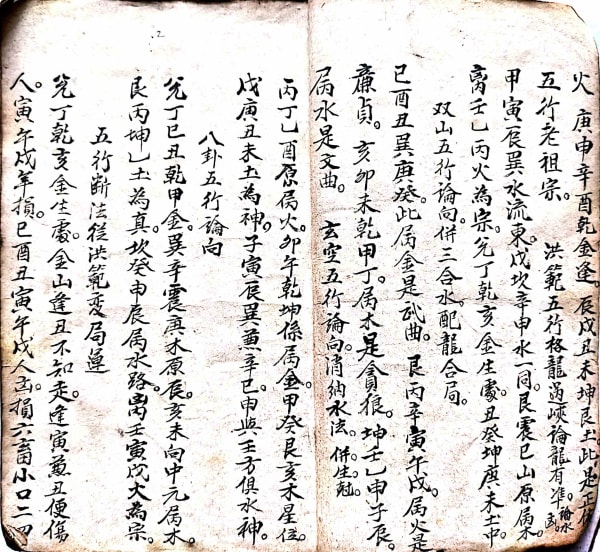 火庚申辛酉乾金逢。辰戌丑未坤艮土。此是正
五行老祖宗。　洪範五行格龍過峽論龍有準。論水
甲寅辰巽水流東。戊坎辛申水一同。艮震巳山原屬木。
离壬乙丙火為宗。兌丁乾亥金生處。丑癸坤庚未土中
双山五行論向。併三合水配龍合局。
巳酉丑巽庚癸。此屬金是武曲。艮丙辛寅午戌。屬火是
廉貞。亥卯未乾甲丁。屬木是貪狼。坤壬乙申子辰。
屬水是文曲。　玄空五行論向。消納水法。併生尅。
丙丁乙酉原屬火。卯午乾坤係屬金。甲癸艮亥木星位。
戊庚丑未土為神。子寅辰巽兼辛巳。申與壬方俱水神。
八卦五行論向
兌丁巳丑乾甲金。巽辛震庚木原辰。亥未向中元屬木。
艮丙坤乙土為真。坎癸申辰屬水路。离壬寅戌火為宗。
五行断法從洪範変局運
兌丁乾亥金生處。金山逢丑不知走。逢寅兼丑便傷
人。寅午戌年損。巳酉丑寅午戌人丕損六畜小口二四